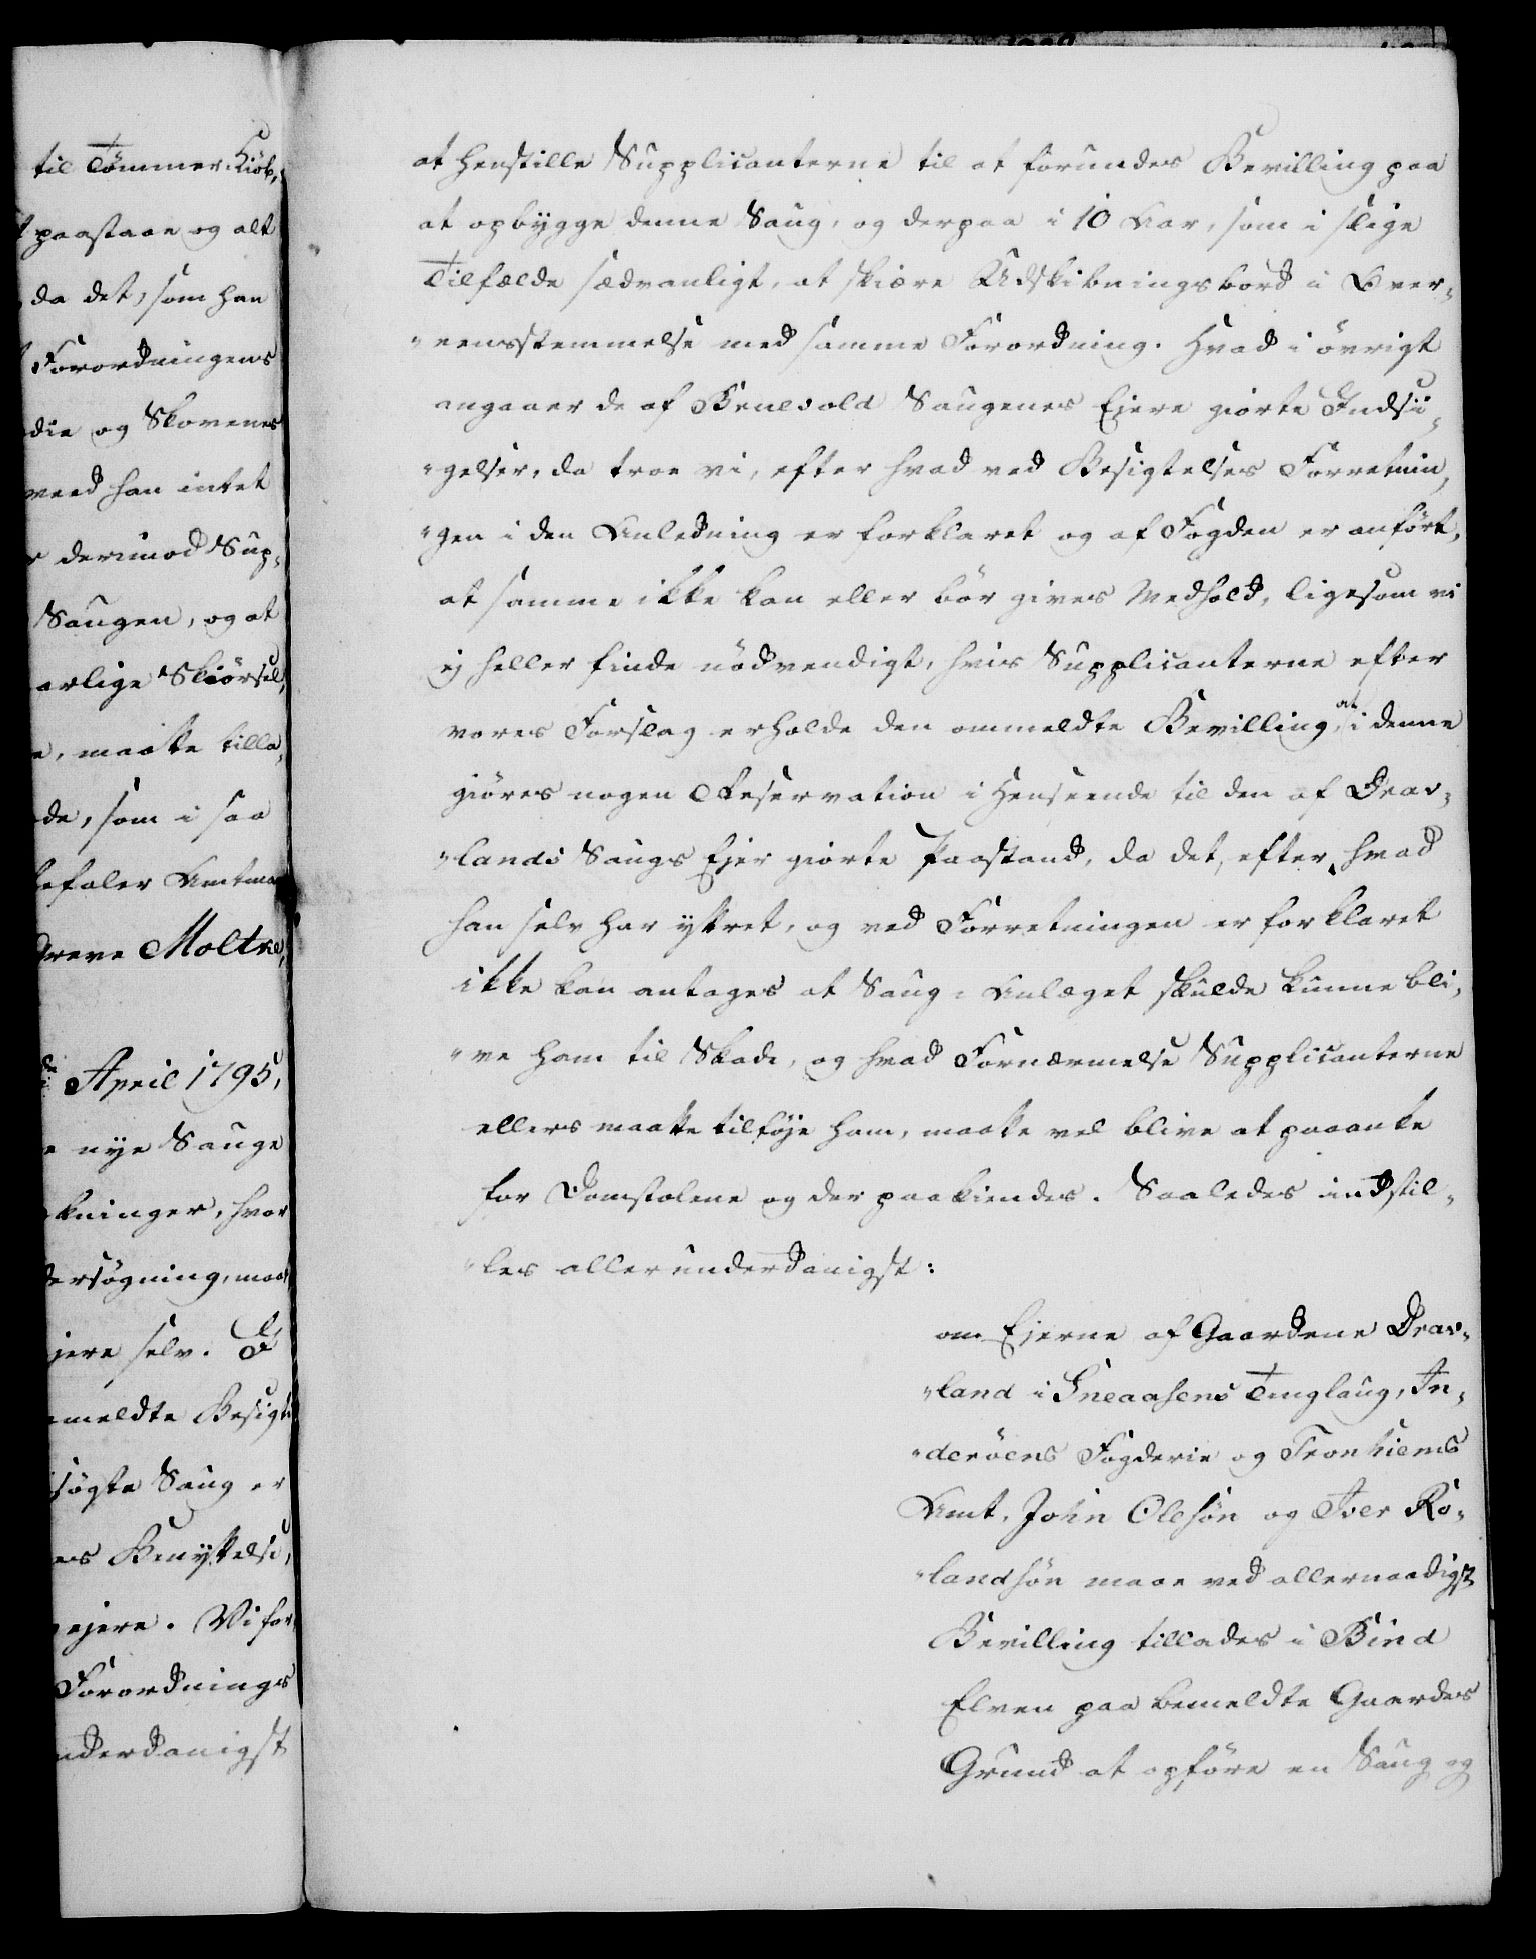 til Tømmer-Kiöb,
paastaae og alt
da det, som han
Forordningens
die og Skovenes
veed han intet
derimod Sup-
Saugen, og at
arlige Skiörsel,
e, maatte tilla-
de, som i saa
befaler Amtmand
Greve Moltke,
April 1795,
nye Sauge
kninger, hvor
ersögning, maae
jere selv. D
meldte Besigt
sögte Saug er
es Benyttelse,
ejere. Vi for
Forordnings
nderdanigst
at henstille Supplicanterne til at forundes Bevilling paa
at opbygge denne Saug, og derpaa i 10 Aar, som i slige
Tilfælde sædvanligt, at skiære Udskibningsbord i Over-
"eensstemmelse med samme Forordning. Hvad i övrigt
angaaer de af Bruevold Saugenes Ejere giorte Indsi-
"gelser, da troe vi, efter hvad ved Besigtelses Forretnin-
"gen i den Anledning er forklaret og af Fogden er anfört,
at samme ikke kan eller bör gives Medhold, ligesom vi
ej heller finde nödvendigt, hvis Supplicanterne efter
vores Forslag erholde den ommeldte Bevilling, at i denne
giöres nogen Reservation i Henseende til den af Drav-
"lands Saugs Ejer giorte Paastand, da det, efter hvad
han selv har yttret, og ved Forretningen er forklaret
ikke kan antages at Saug-Anlæget skulde kunne bli-
"ve ham til Skade, og hvad Fornærmelse Supplicanterne
ellers maatte tilföje ham, maatte vel blive at paaanke
for Domstolene og der paakiendes. Saaledes indstil-
"les allerunderdanigst:
om Ejerne af Gaardene Drav-
"land i Sneaasens Tinglaug, In-
"deröens Fogderie og Tronhiems
Amt, John Olesön og Iver Ro-
"landsön maae ved allernaadigst
Bevilling tillades i Bind
Elven paa bemeldte Gaardes
Grund at opföre en Saug og